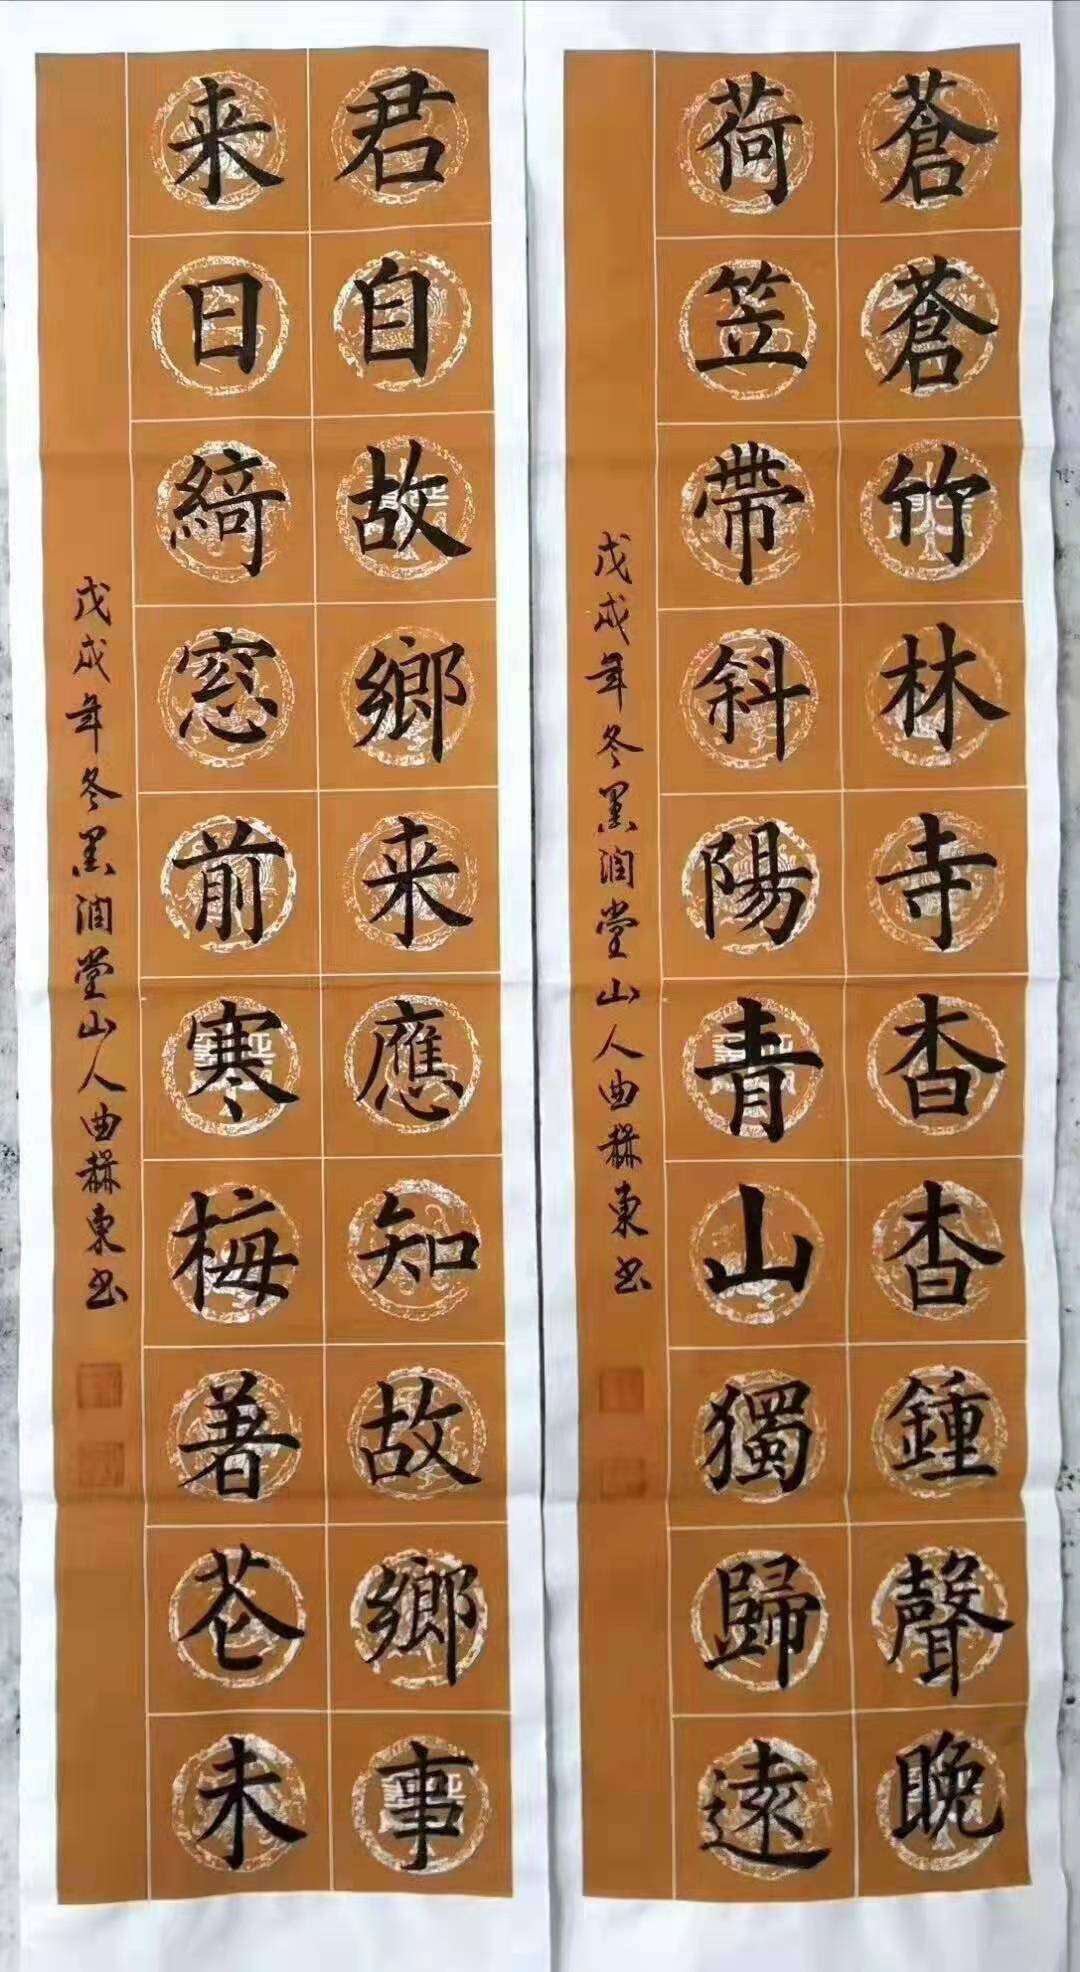 蒼蒼竹林寺杳杳鍾聲晚
荷笠帶斜陽青山獨歸遠
戊戌年冬墨润堂山人曲赫東书
君自故鄉来應知故鄉事
来日綺窓前寒梅着花未
戊戌年冬墨润堂山人曲赫東书